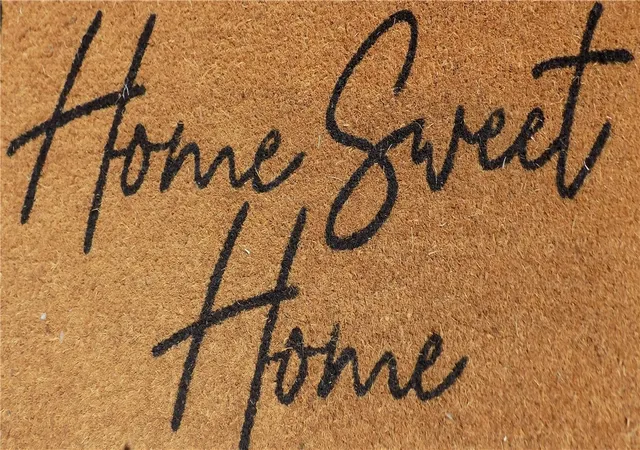 Home Sweet
Home